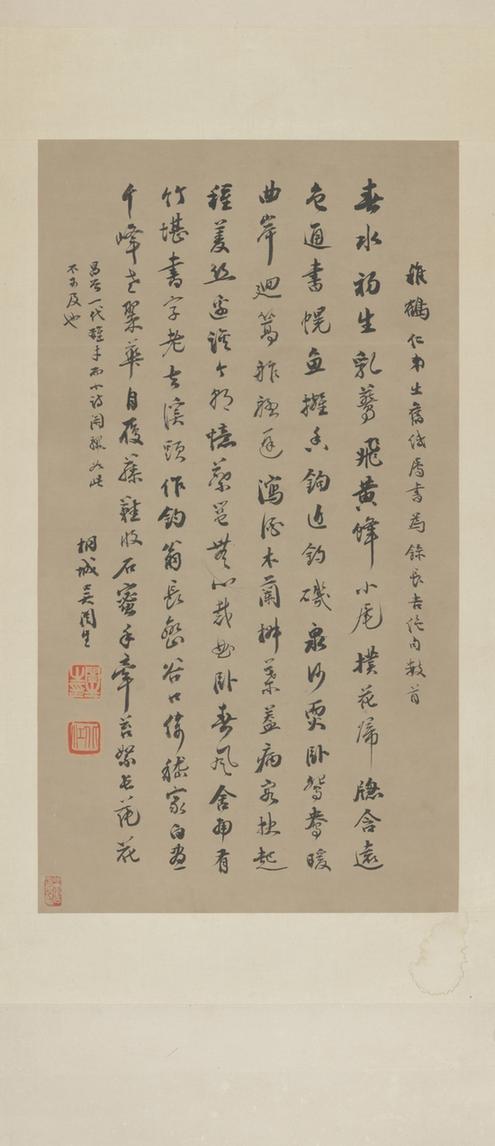 鶴仁弟出舊紙屬書為錄長吉絕句數首
春水初生乳燕飛黃蜂小尾撲花歸牕含遠
色通書幌魚擁香鉤近釣磯泉沙耎臥鴛鴦暖
曲岸迴篙舴艋遲瀉酒木蘭椒葉蓋病容扶起
種菱絲邊讓今朝憶蔡邕無心裁曲臥春風舍南有
竹堪書字老去溪頭作釣翁長巒谷口倚嵇家白晝
千峰老翠華自履藤鞋收石蜜手牽苔絮長蓴花
昌谷一代手而小詩閒如此
不可及也
桐城吳闓生